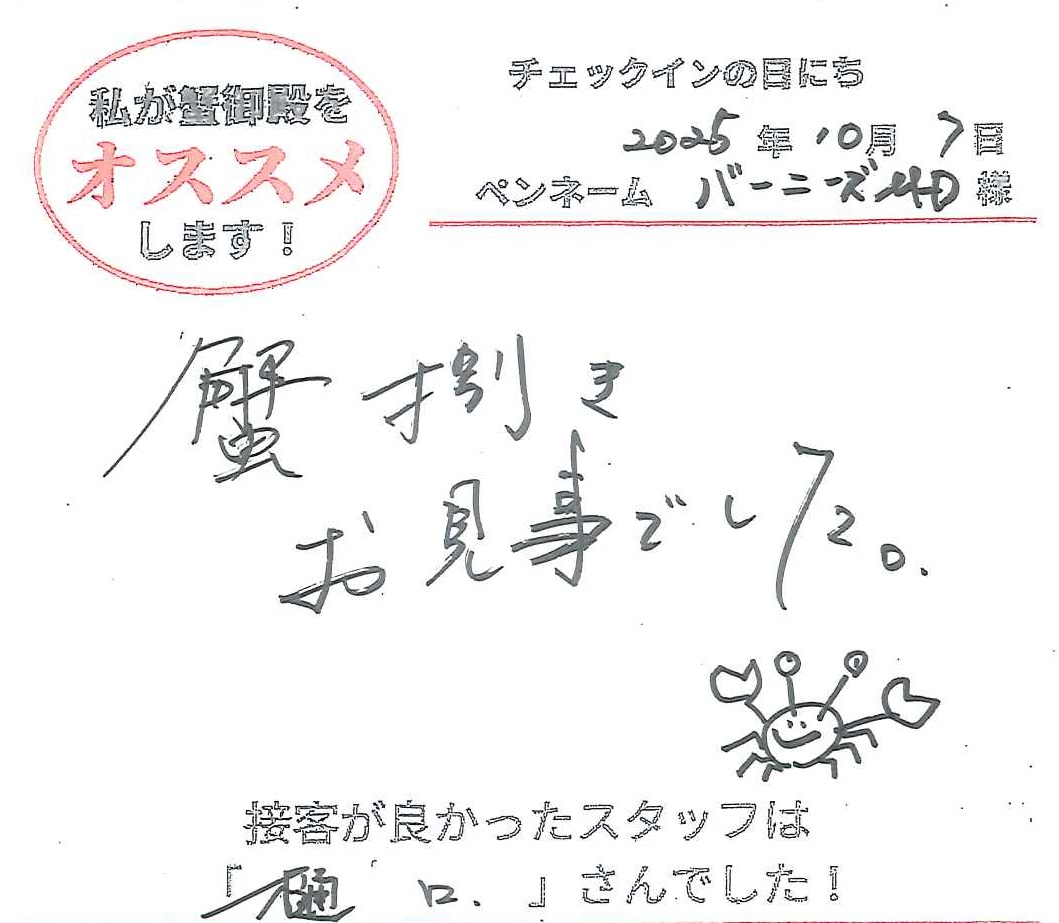 私が蟹御殿を
オススメ
します！
チェックインの日にち
2025年10月7日
ペンネーム バーニーズMD様
蟹捌き
お見事でした。
接客が良かったスタッフは
「樋口.」さんでした！